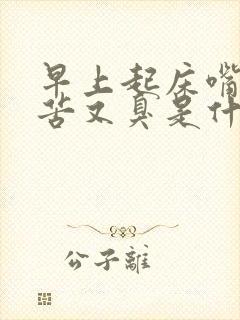 早上起床嘴
苦又臭是什
公子離